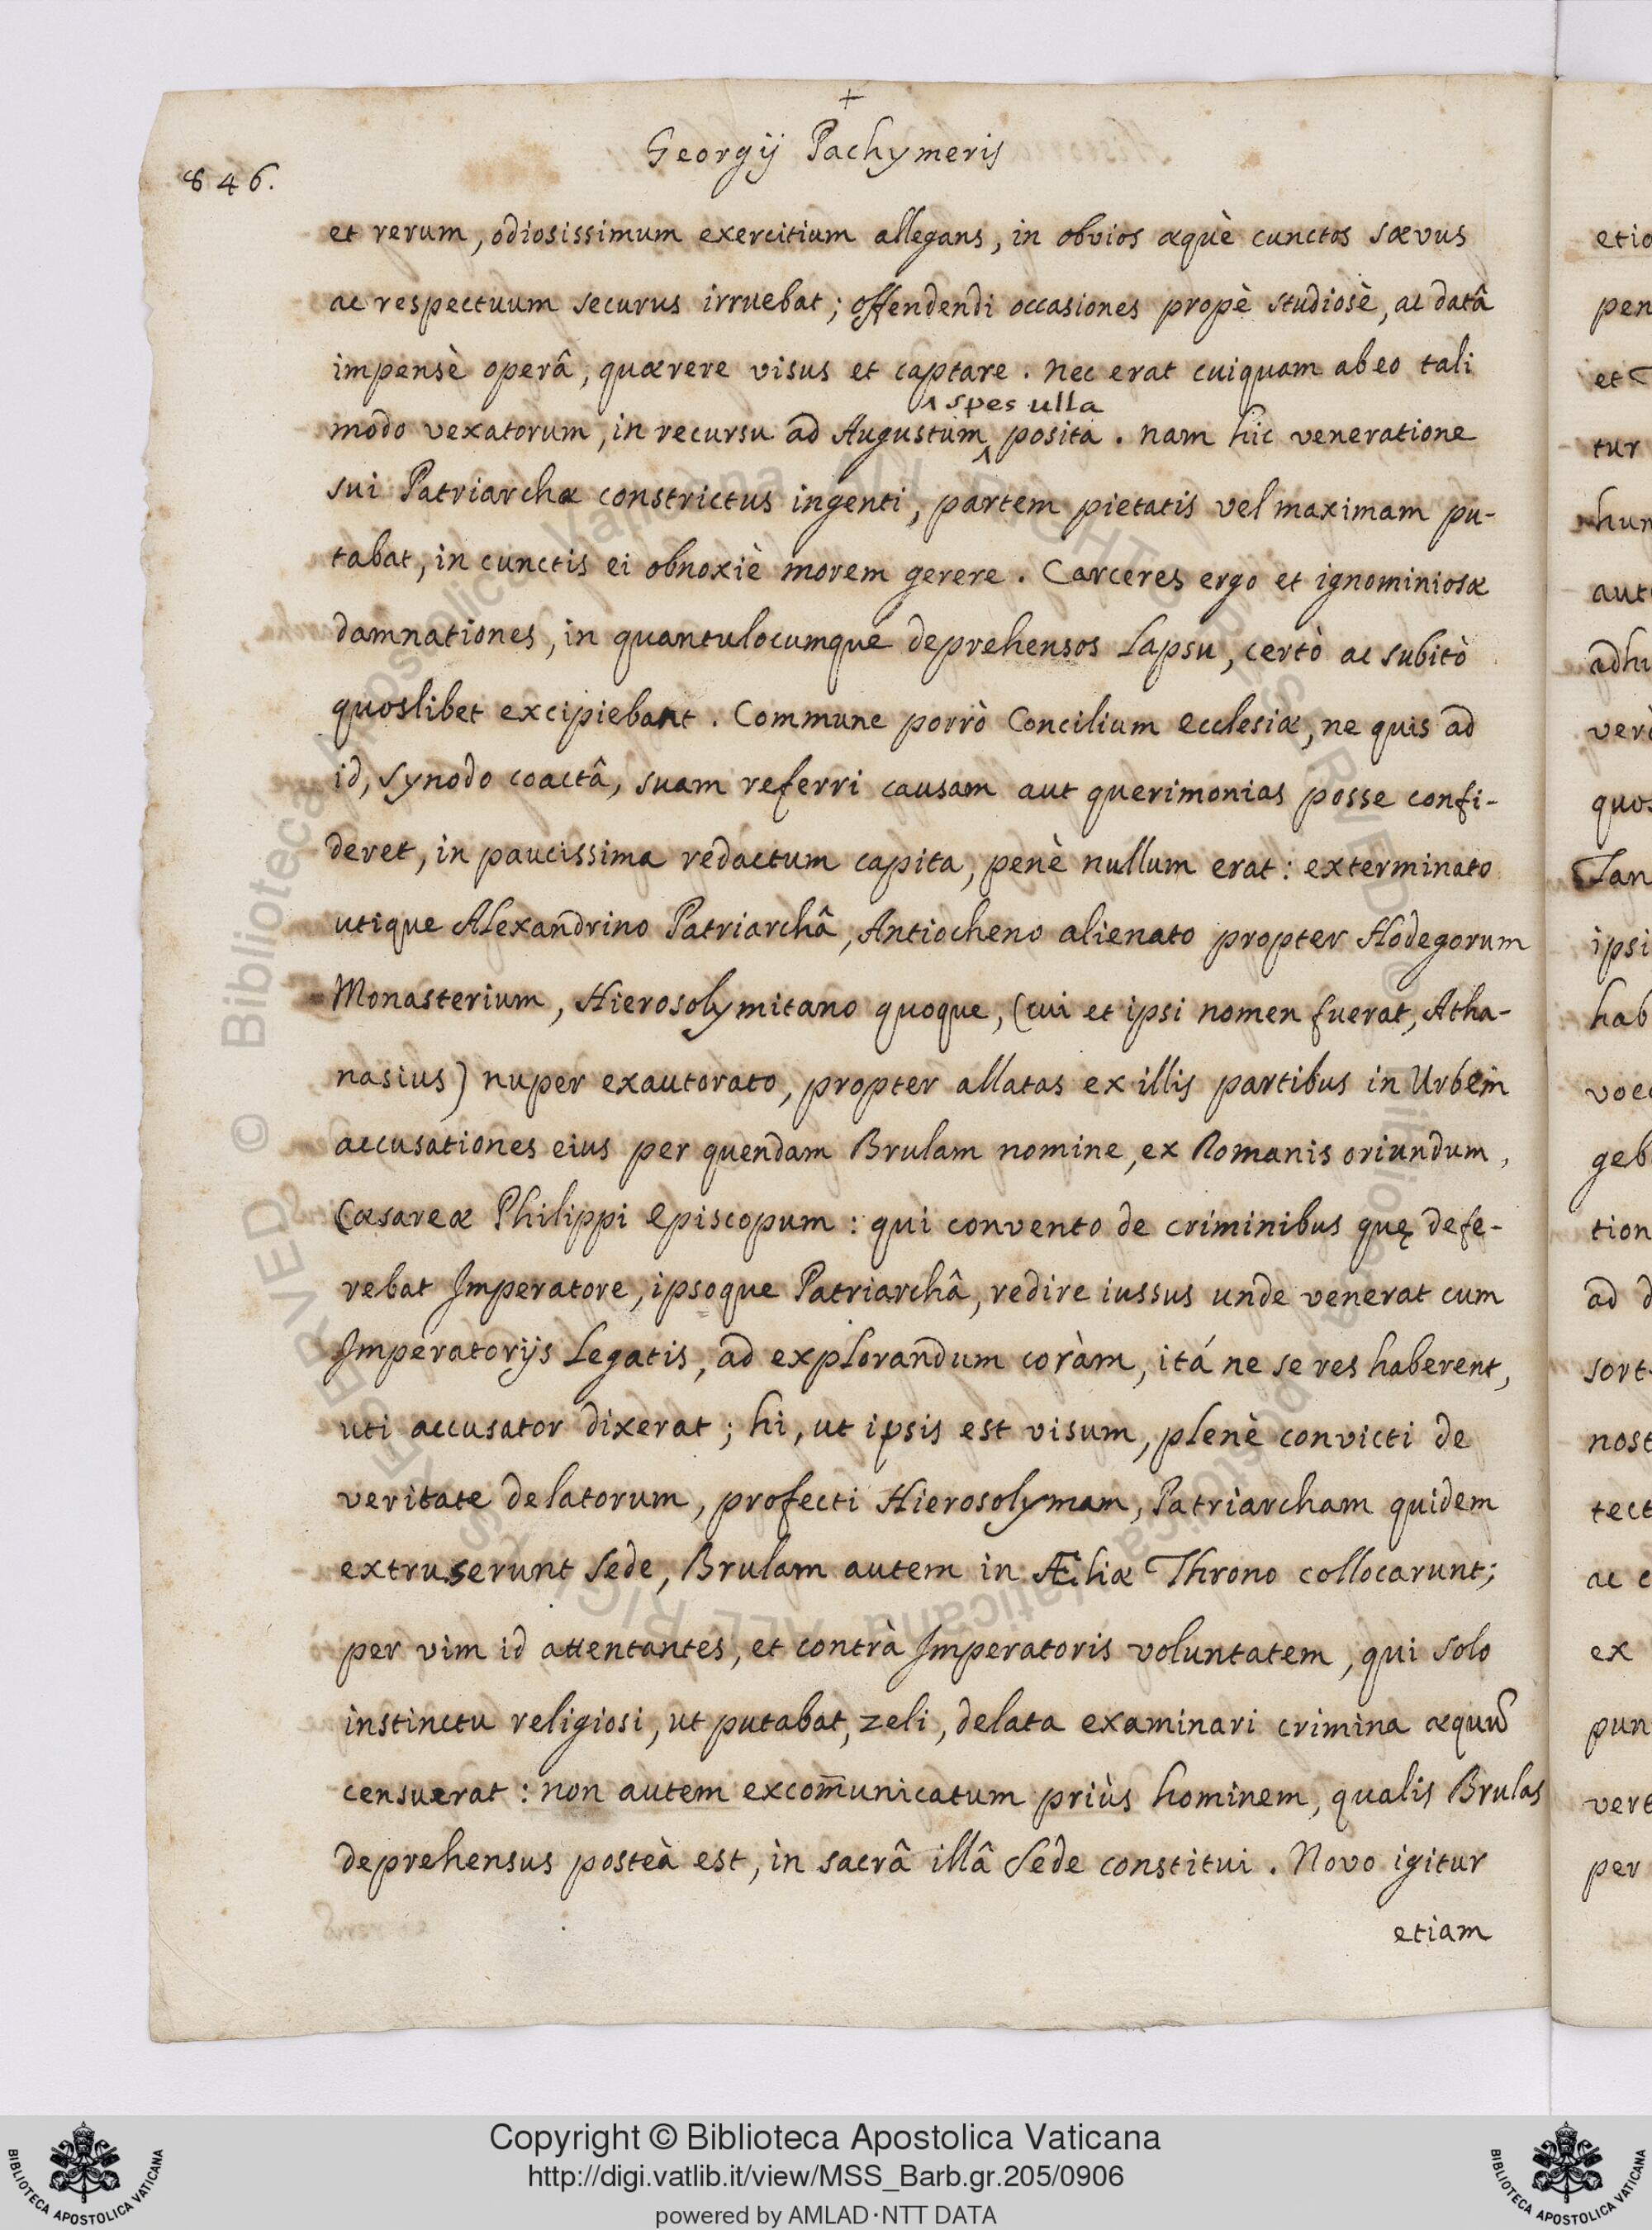 +
Georgij Pachymeris
846.
et rerum, odiosissimum exercitium allegans, in obvios æquè cunctos sævus
ac respectuum securus irruebat; offendendi occasiones propè studiosè, ac datâ
impensè operâ, quærere visus et captare. nec erat cuiquam ab eo tali
^ spes ulla
modo vexatorum, in recursu ad Augustum ^ posita. nam hic veneratione
sui Patriarchæ constrictus ingenti, partem pietatis vel maximam pu-
tabat, in cunctis ei obnoxiè morem gerere. Carceres ergo et ignominiosæ
damnationes, in quantulocumque deprehensos lapsu, certò ac subitò
quoslibet excipiebant. Commune porrò Concilium ecclesiæ, ne quis ad
id, synodo coactâ, suam referri causam aut querimonias posse confi-
deret, in paucissima redactum capita, penè nullum erat: exterminato
utique Alexandrino Patriarchâ, Antiocheno alienato propter Hodegorum
Monasterium, Hierosolymitano quoque, (cui et ipsi nomen fuerat, Atha-
nasius) nuper exautorato, propter allatas ex illis partibus in Urbem
accusationes eius per quendam Brulam nomine, ex Romanis oriundum,
Cæsareæ Philippi episcopum: qui convento de criminibus quę defe-
rebat Imperatore, ipsoque Patriarchâ, redire iussus unde venerat cum
Imperatorijs Legatis, ad explorandum coràm, itá ne se res haberent,
uti accusator dixerat; hi, ut ipsis est visum, plenè convicti de
veritate delatorum, profecti Hierosolymam, Patriarcham quidem
extruserunt sede, Brulam autem in Æliæ Throno collocarunt;
per vim id attentantes, et contrà Imperatoris voluntatem, qui solo
instinctu religiosi, ut putabat, zeli, delata examinari crimina æquũ
censuerat: non autem excom̄unicatum priùs hominem, qualis Brulas
deprehensus posteà est, in sacrâ illâ sede constitui. Novo igitur
etiam
etia
pen
et
tur
hun
aut
adhu
verò
quos
Tan
ipsi
hab
voc
geb
tion
ad d
sort
nost
tect
ac c
ex
pun
vert
per
© Biblioteca Apostolica Vaticana ALL RIGHTS RESERVED
© Biblioteca Apostolica Vaticana ALL RIGHTS RESERVED
Copyright © Biblioteca Apostolica Vaticana
http://digi.vatlib.it/view/MSS_Barb.gr.205/0906
powered by AMLAD·NTT DATA
BIBLIOTECA APOSTOLICA VATICANA
BIBLIOTECA APOSTOLICA VATICANA